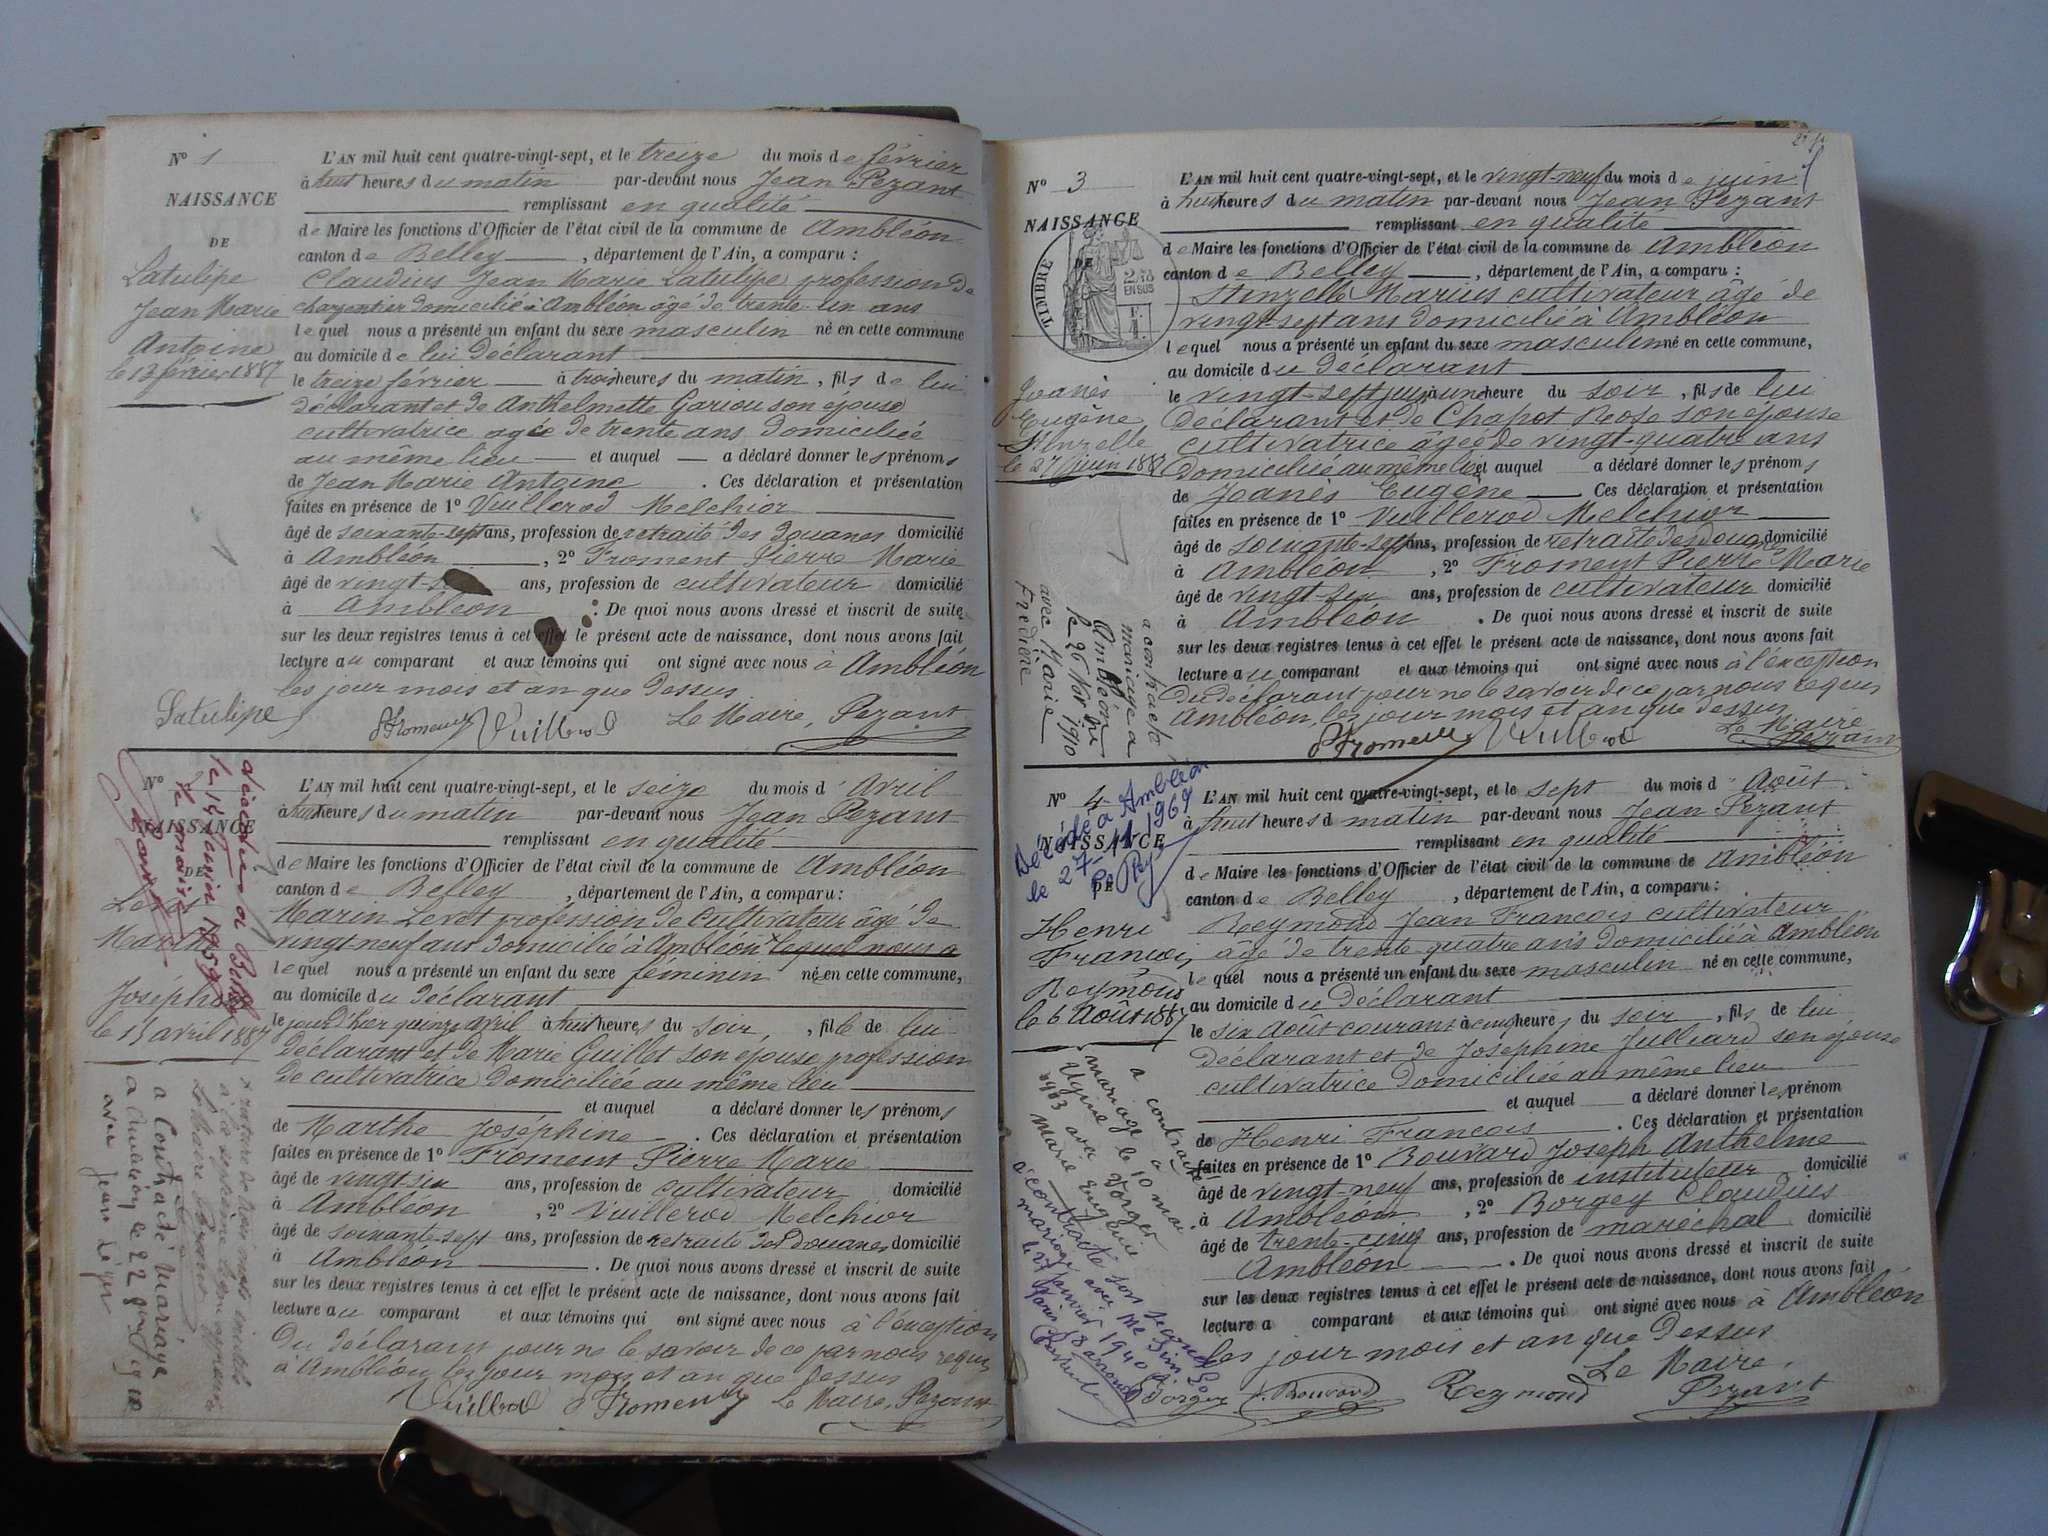 N° 1
NAISSANCE
DE
Latulipe
Jean Marie
Antoine
le 13 février 1887
L'AN mil huit cent quatre-vingt-sept, et le treize du mois de février
à huit heures du matin par-devant nous Jean Pezant
remplissant en qualité
de Maire les fonctions d'Officier de l'état civil de la commune de Ambléon
canton de Belley, département de l'Ain, a comparu :
Claudius Jean Marie Latulipe profession de
charpentier domicilié à Ambléon âgé de trente un ans
lequel nous a présenté un enfant du sexe masculin né en cette commune
au domicile de lui déclarant
le treize février à trois heures du matin, fils de lui
déclarant et de Anthelmette Gariou son épouse
cultivatrice agée de trente ans domiciliée
au même lieu et auquel a déclaré donner les prénoms
de Jean Marie Antoine. Ces déclaration et présentation
faites en présence de 1° Vuillerod Melchior
âgé de soixante-sept ans, profession de retraité des douanes domicilié
à Ambléon, 2° Froment Pierre Marie
âgé de vingt-s ans, profession de cultivateur domicilié
à Ambléon. De quoi nous avons dressé et inscrit de suite
sur les deux registres tenus à cet effet le présent acte de naissance, dont nous avons fait
lecture au comparant et aux témoins qui ont signé avec nous à Ambléon
les jour mois et an que dessus
Latulipe P Froment Vuillerod Le Maire, Pezant
N°
NAISSANCE
DE
Marthe
Joséphine
le 15 avril 1887
décédée à
le 14 janvier 1959
le maire
L'AN mil huit cent quatre-vingt-sept, et le seize du mois d'Avril
à huit heures du matin par-devant nous Jean Pezant
remplissant en qualité
de Maire les fonctions d'Officier de l'état civil de la commune de Ambléon
canton de Belley, département de l'Ain, a comparu :
Marin Levet profession de cultivateur âgé de
vingt neuf ans domicilié à Ambléon lequel nous a
lequel nous a présenté un enfant du sexe féminin né en cette commune,
au domicile du déclarant
le jour d'hier quinze avril à huit heures du soir, fille de lui
déclarant et de Marie Guillet son épouse profession
de cultivatrice domiciliée au même lieu
et auquel a déclaré donner les prénoms
de Marthe Joséphine. Ces déclaration et présentation
faites en présence de 1° Froment Pierre Marie
âgé de vingt six ans, profession de cultivateur domicilié
à Ambléon, 2° Vuillerod Melchior
âgé de soixante-sept ans, profession de retraité des douanes domicilié
à Ambléon. De quoi nous avons dressé et inscrit de suite
sur les deux registres tenus à cet effet le présent acte de naissance, dont nous avons fait
lecture au comparant et aux témoins qui ont signé avec nous à l'exception
du déclarant pour ne le savoir de ce par nous requis
à Ambléon les jour mois et an que dessus
Vuillerod P Froment Le Maire, Pezant
a Contracté Mariage
a Ambléon le 22
avec Jean Léger
N° 3
NAISSANCE
DE
TIMBRE
EN SUS
Joanès
Eugène
Stinzelle
le 27 juin 1887
a contracté
mariage a
Ambléon
le 26 Nov 1910
avec Marie
Fredière
L'AN mil huit cent quatre-vingt-sept, et le vingt-neuf du mois de juin
à huit heures du matin par-devant nous Jean Pezant
remplissant en qualité
de Maire les fonctions d'Officier de l'état civil de la commune de Ambléon
canton de Belley, département de l'Ain, a comparu :
Stinzelle Marius cultivateur âgé de
vingt-sept ans domicilié à Ambléon
lequel nous a présenté un enfant du sexe masculin né en cette commune,
au domicile du déclarant
le vingt-sept juin à une heure du soir, fils de lui
déclarant et de Chapot Rose son épouse
cultivatrice âgée de vingt-quatre ans
domiciliée au même lieu et auquel a déclaré donner les prénoms
de Joanès Eugène Ces déclaration et présentation
faites en présence de 1° Vuillerod Melchior
âgé de soixante-sept ans, profession de retraité des douanes domicilié
à Ambléon, 2° Froment Pierre Marie
âgé de vingt-six ans, profession de cultivateur domicilié
à Ambléon. De quoi nous avons dressé et inscrit de suite
sur les deux registres tenus à cet effet le présent acte de naissance, dont nous avons fait
lecture au comparant et aux témoins qui ont signé avec nous à l'exception
du déclarant pour ne le savoir de ce par nous requis
Ambléon, les jour mois et an que dessus
P Froment Vuillerod Le Maire
Pezant
N° 4
NAISSANCE
DE
Décédé a Ambléon
le 27-11-1969
Henri
François
Reymond
le 6 Août 1887
a contracté
mariage le 10 mai
Ugine avec Vorger
Marie Eugénie
a contracté son second
mariage avec
le 27 janvier 1940
Paris 18 arrond
L'AN mil huit cent quatre-vingt-sept, et le sept du mois d'Août
à huit heures d matin par-devant nous Jean Pezant
remplissant en qualité
de Maire les fonctions d'Officier de l'état civil de la commune de Ambléon
canton de Belley, département de l'Ain, a comparu :
Reymond Jean François cultivateur
âgé de trente quatre ans domicilié à Ambléon
lequel nous a présenté un enfant du sexe masculin né en cette commune,
au domicile du déclarant
le six Août courant à cinq heures du soir, fils de lui
déclarant et de Joséphine Julliard son épouse
cultivatrice domiciliée au même lieu
et auquel a déclaré donner les prénom
de Henri François. Ces déclaration et présentation
faites en présence de 1° Bouvard Joseph Anthelme
âgé de vingt-neuf ans, profession de instituteur domicilié
à Ambléon, 2° Borgey Claudius
âgé de trente-cinq ans, profession de maréchal domicilié
Ambléon. De quoi nous avons dressé et inscrit de suite
sur les deux registres tenus à cet effet le présent acte de naissance, dont nous avons fait
lecture a comparant et aux témoins qui ont signé avec nous à Ambléon
les jour mois et an que dessus
Le Maire,
Borgey J. Bouvard Reymond Pezant